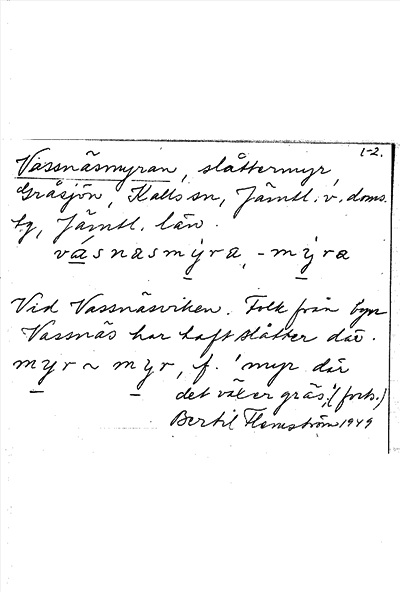 1-2.
Vassnäsmyran, slåttermyr,
Gråsjön, Kalls sn, Jämtl. v. doms.
tg, Jämtl. län.
vásnasmỳra, -mỳra
Vid Vassnäsviken. Folk från byn
Vassnäs har haft slåtter där.
myr ~ myr, f. 'myr där
det växer gräs'. (forts.)
Bertil Flemström 1949